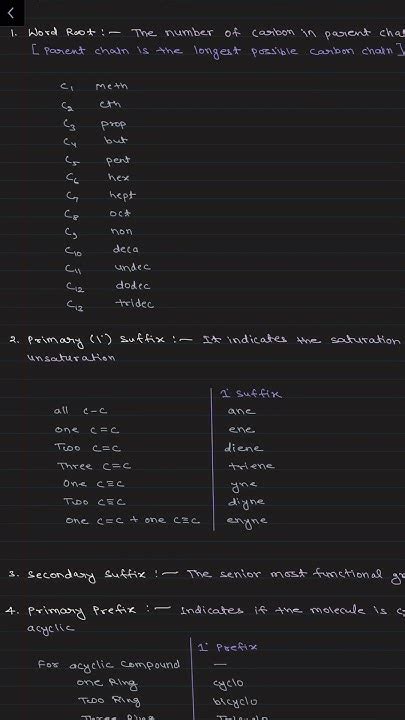 1. Word Root :— The number of carbon in parent cha
[Parent chain is the longest possible carbon chain]
C1 meth
C2 eth
C3 prop
C4 but
C5 pent
C6 hex
C7 hept
C8 oct
C9 non
C10 deca
C11 undec
C12 dodec
C13 tridec
2. Primary (1°) Suffix :— It indicates the saturation
unsaturation
1° Suffix
all C-C ane
one C=C ene
Two C=C diene
Three C=C triene
One C≡C yne
Two C≡C diyne
one C=C + one C≡C enyne
3. Secondary Suffix :— The senior most functional gr
4. Primary Prefix :— Indicates if the molecule is c
acyclic
1° Prefix
For acyclic compound —
one Ring cyclo
Two Ring bicyclo
Three Ring